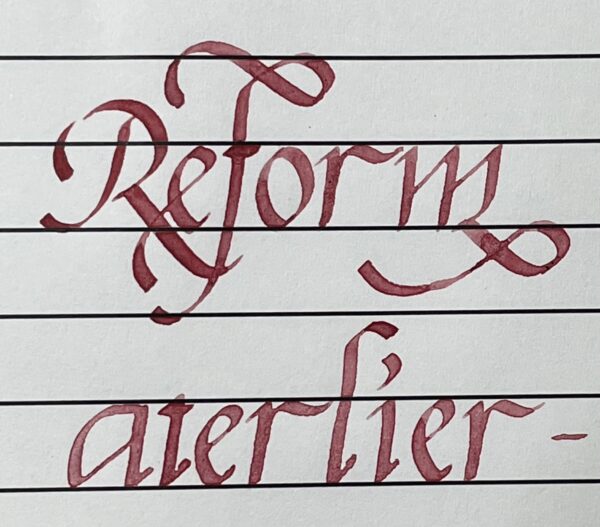 Reform
aterlier -